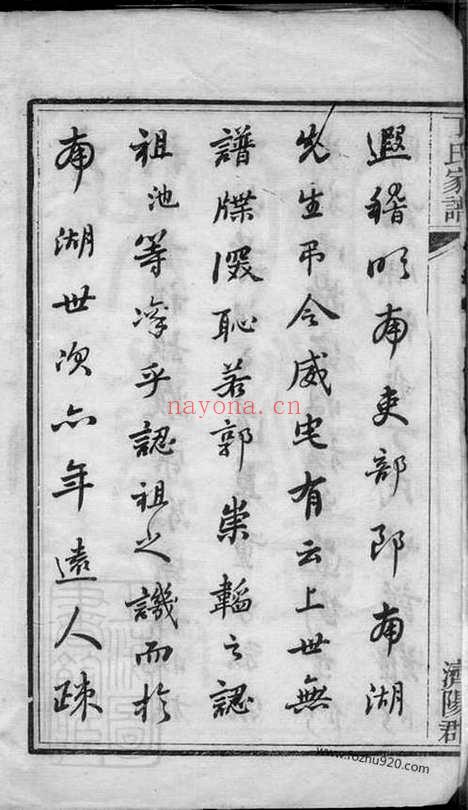 丁氏家譜
濟陽郡
遐稽明南吏部郎南湖
先生弔令威宅有云上世無
譜牒深恥若郭崇韜之認
祖池等淳乎認祖之譏而於
南湖世次亦年遠人疎
nayona.cn
www.rozhu920.com